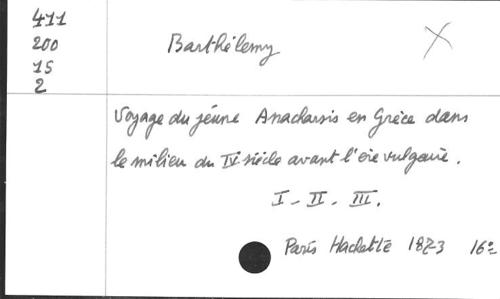 411
200
15
2
Barthélemy
X
Voyage du jeune Anacharsis en Grèce dans
le milieu du IV siècle avant l'ère vulgaire.
I - II - III.
Paris Hachette 1873 16°